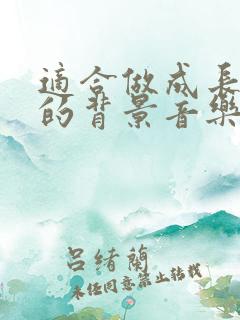 適合做成長
的背景音樂
呂绪蘭
未经同意禁止转载